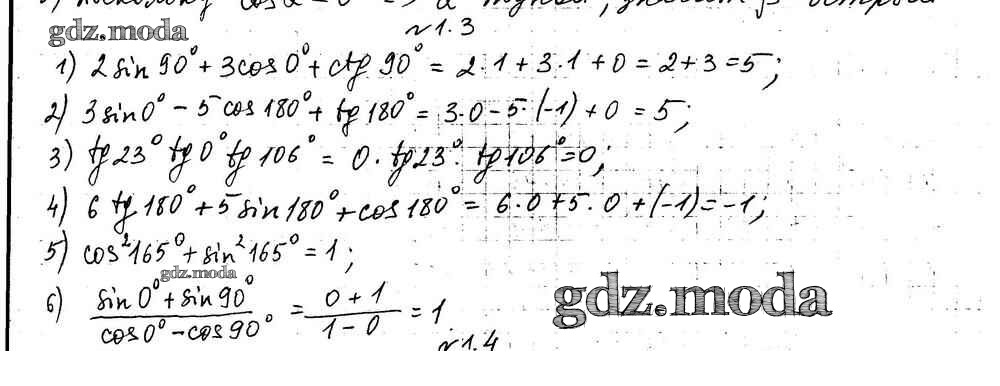 cos α
gdz.moda
№1.3
1) 2 sin 90° + 3 cos 0° + ctg 90° = 2·1 + 3·1 + 0 = 2+3 = 5;
2) 3 sin 0° - 5 cos 180° + tg 180° = 3·0 - 5·(-1) + 0 = 5;
3) tg 23° tg 0° tg 106° = 0 · tg 23° · tg 106° = 0;
4) 6 tg 180° + 5 sin 180° + cos 180° = 6·0 + 5·0 + (-1) = -1;
5) cos² 165° + sin² 165° = 1;
gdz.moda
6) (sin 0° + sin 90°)/(cos 0° - cos 90°) = (0+1)/(1-0) = 1
gdz.moda
№1.4